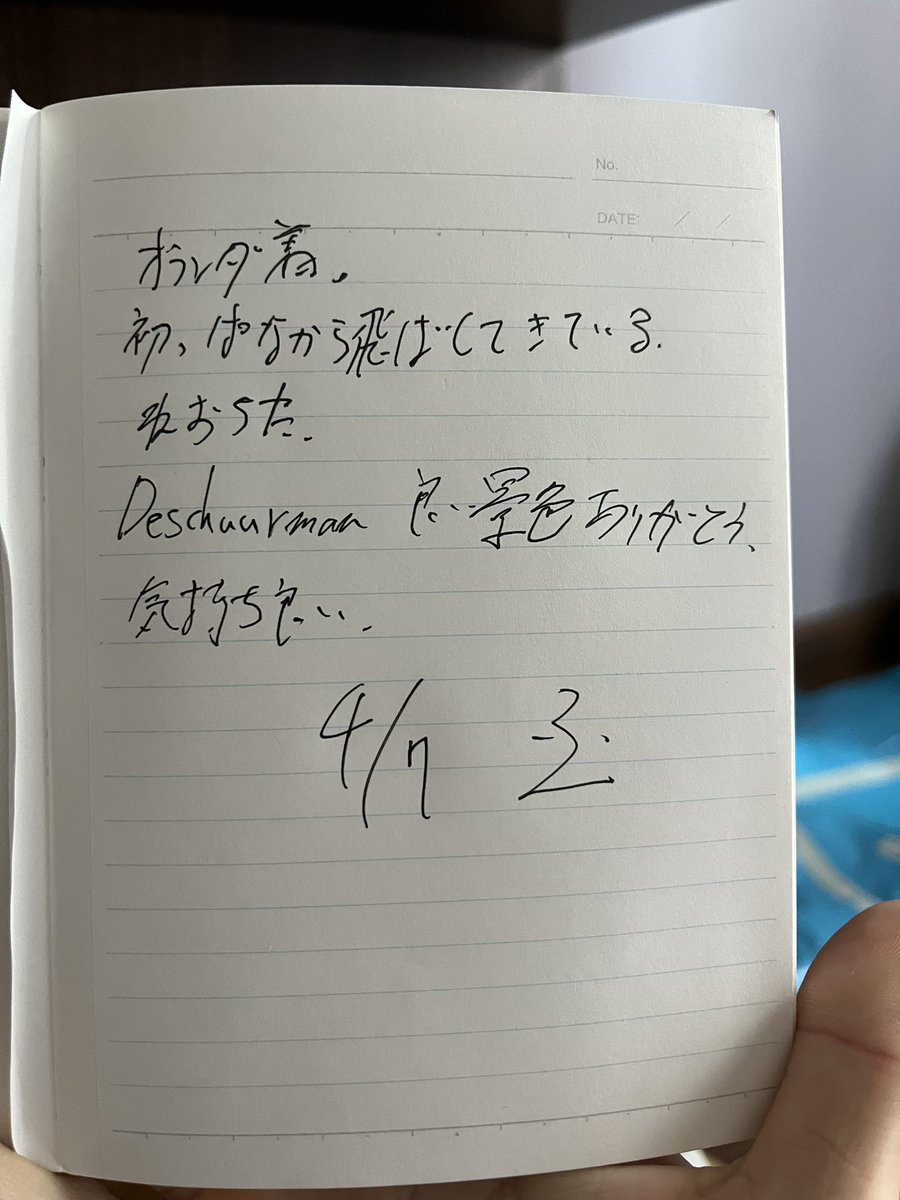 No.
DATE: / /
オランダ着。
初っぱなから飛ばしてきている.
おうた.
Deschuurman 良い景色ありがとう、
気持ち良い.
4/7